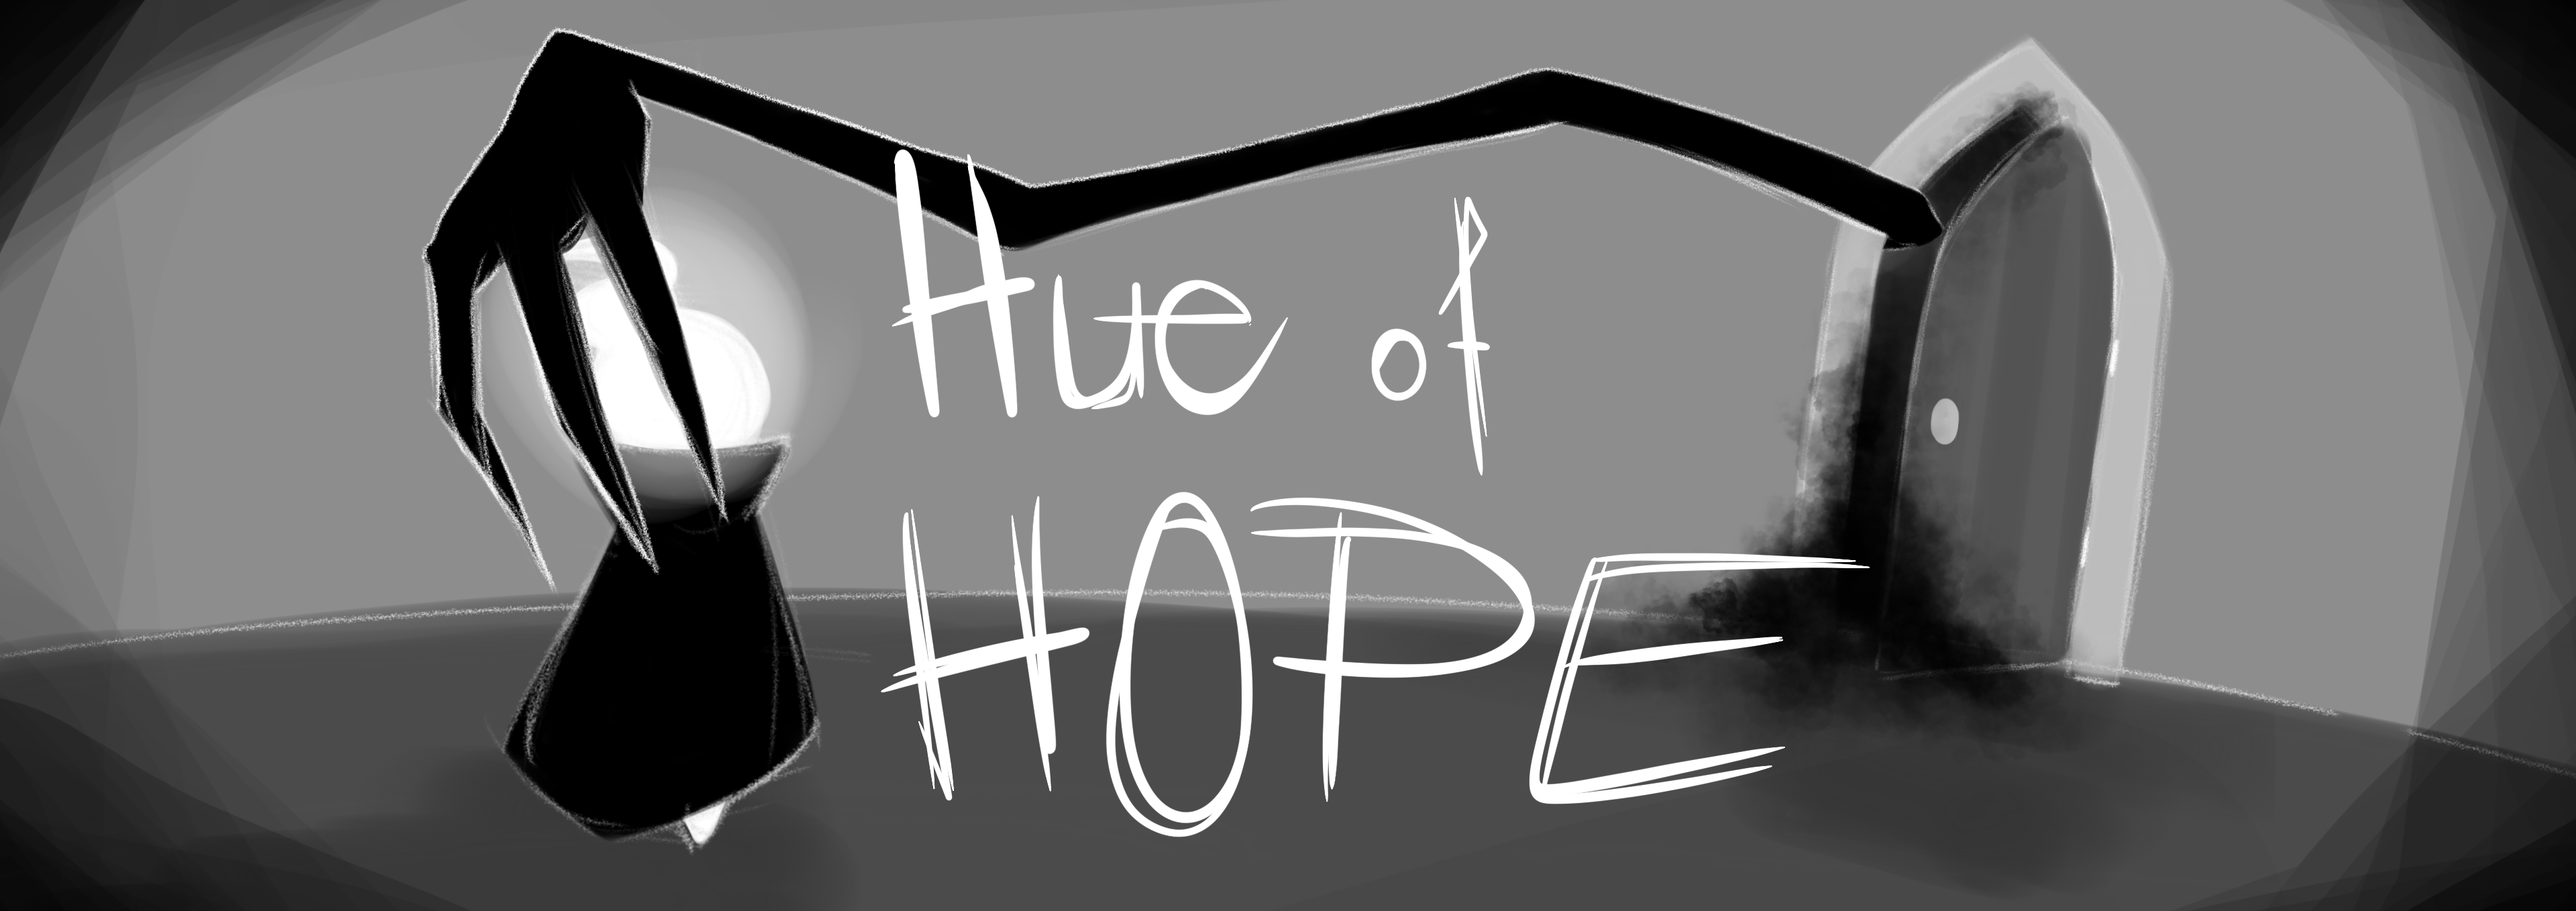 Hue of
HOPE